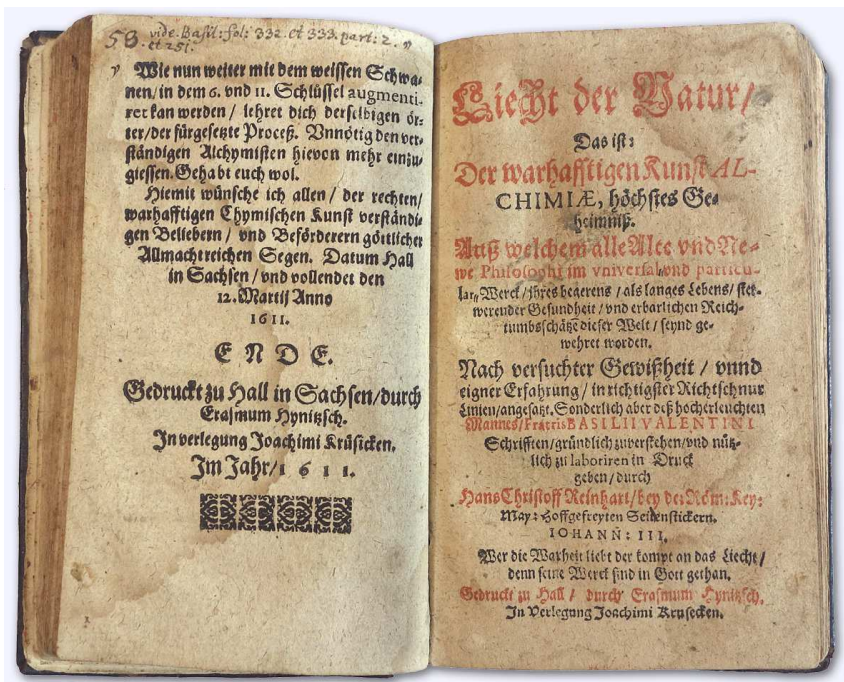 58. vide. Basil: fol: 332. et 333. part: 2. "
et 251.
Wie nun weiter mit dem weissen Schwa-
nen/ in dem 6. vnd 11. Schlüssel augmenti-
ret kan werden / lehret dich derselbigen ör-
ter/der fürgesetzte Proceß. Vnnötig den ver-
ständigen Alchymisten hievon mehr einzu-
giessen. Gehabt euch wol.
Hiemit wünsche ich allen / der rechten/
warhafftigen Chymischen Kunst verständi-
gen Beliebern / vnd Beförderern göttlicher
Allmachtreichen Segen. Datum Hall
in Sachsen / vnd vollendet den
12. Martij Anno
1611.
ENDE.
Gedruckt zu Hall in Sachsen/durch
Erasmum Hynitzsch.
In verlegung Joachimi Krüsicken.
Im Jahr/ 1611.
Liecht der Natur/
Das ist:
Der warhafftigen Kunst AL-
CHIMIÆ, höchstes Ge-
heimniß.
Auß welchem alle Alte vnd Ne-
we Philosophi im vniversal vnd particu-
lar„ Werck/ ihres begerens / als langes Lebens/ stet-
werender Gesundheit / vnd erbarlichen Reich-
tumbsschätze dieser Welt / seynd ge-
wehret worden.
Nach versuchter Gewißheit / vnnd
eigner Erfahrung / in richtigster Richtschnur
Linien/angesatzt. Sonderlich aber deß hocherleuchten
Mannes/Fratris BASILII VALENTINI
Schrifften/gründlich zuverstehen/vnd nütz-
lich zu laboriren in Druck
geben/durch
Hans Christoff Reinhart/ bey der Röm: Key:
May: Hoffgefreyten Seidenstickern.
IOHANN: III.
Wer die Warheit liebt der kompt an das Liecht/
denn seine Werck sind in Gott gethan.
Gedruckt zu Hall / durch Erasmum Hynitzsch.
In Verlegung Joachimi Krusecken.